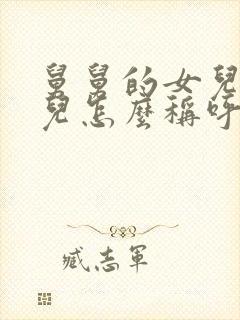 舅舅的女兒
兒怎麼稱呼
臧志軍